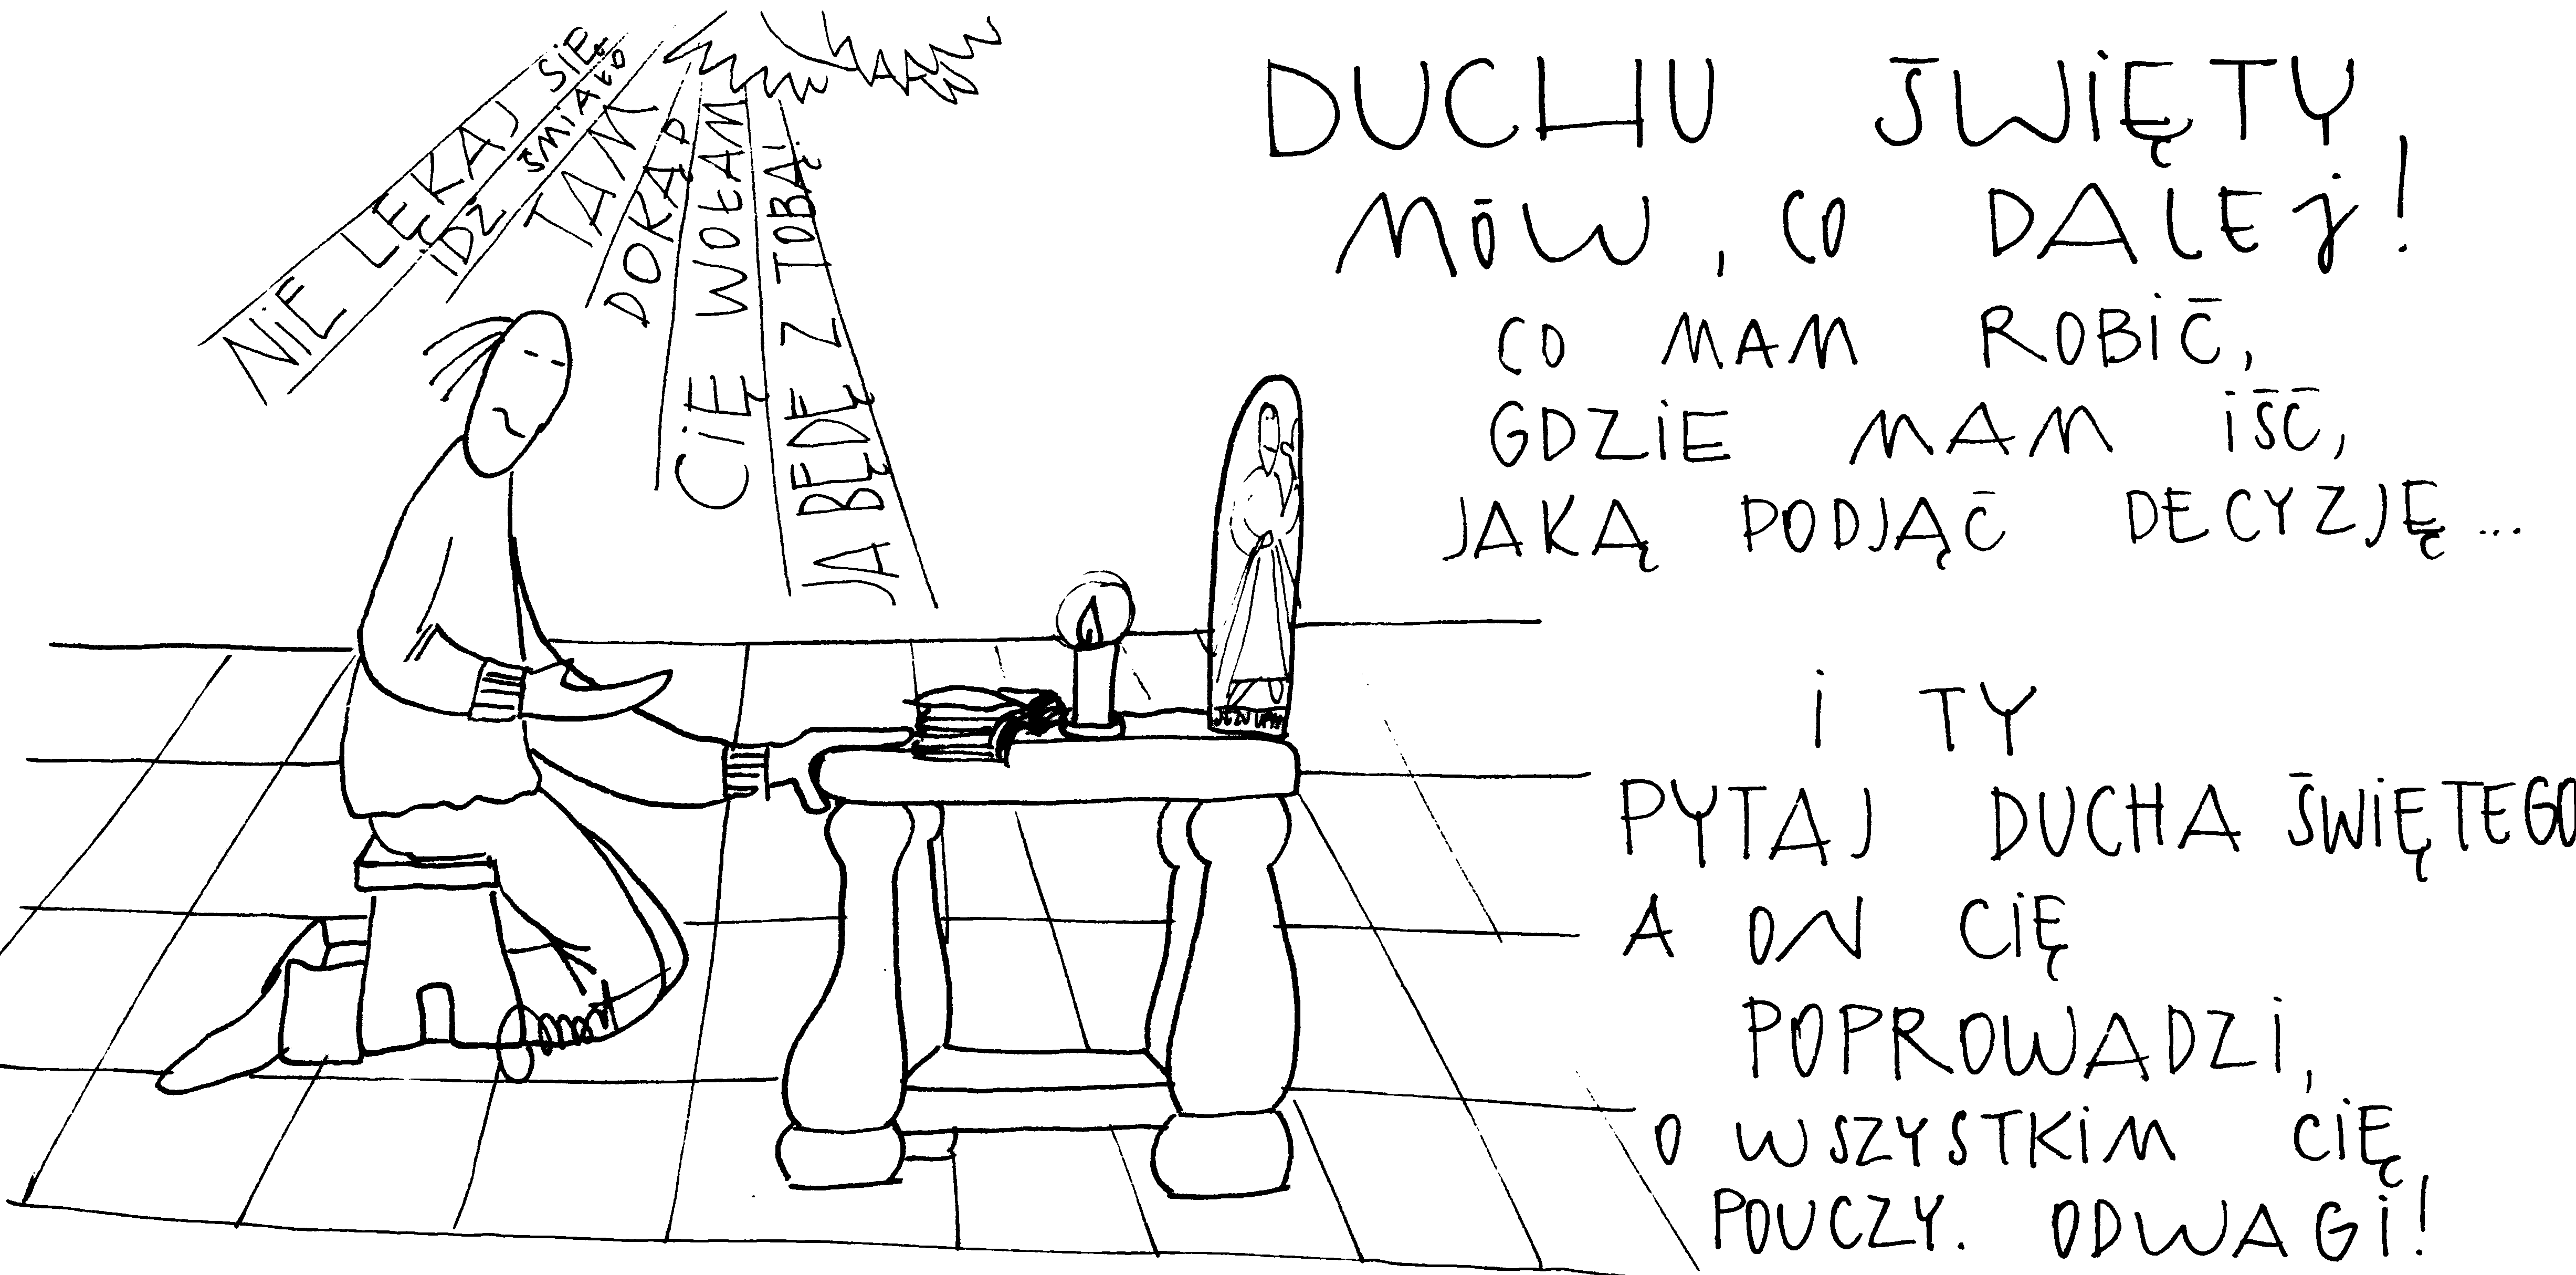 NIE LĘKAJ SIĘ
IDŹ ŚMIAŁO
TAM
DOKĄD
CIĘ WOŁAM
JA BĘDĘ Z TOBĄ!
DUCHU ŚWIĘTY
MÓW, CO DALEJ!
CO MAM ROBIĆ,
GDZIE MAM IŚĆ,
JAKĄ PODJĄĆ DECYZJĘ...
I TY
PYTAJ DUCHA ŚWIĘTEGO
A ON CIĘ
POPROWADZI,
O WSZYSTKIM CIĘ
POUCZY. ODWAGI!